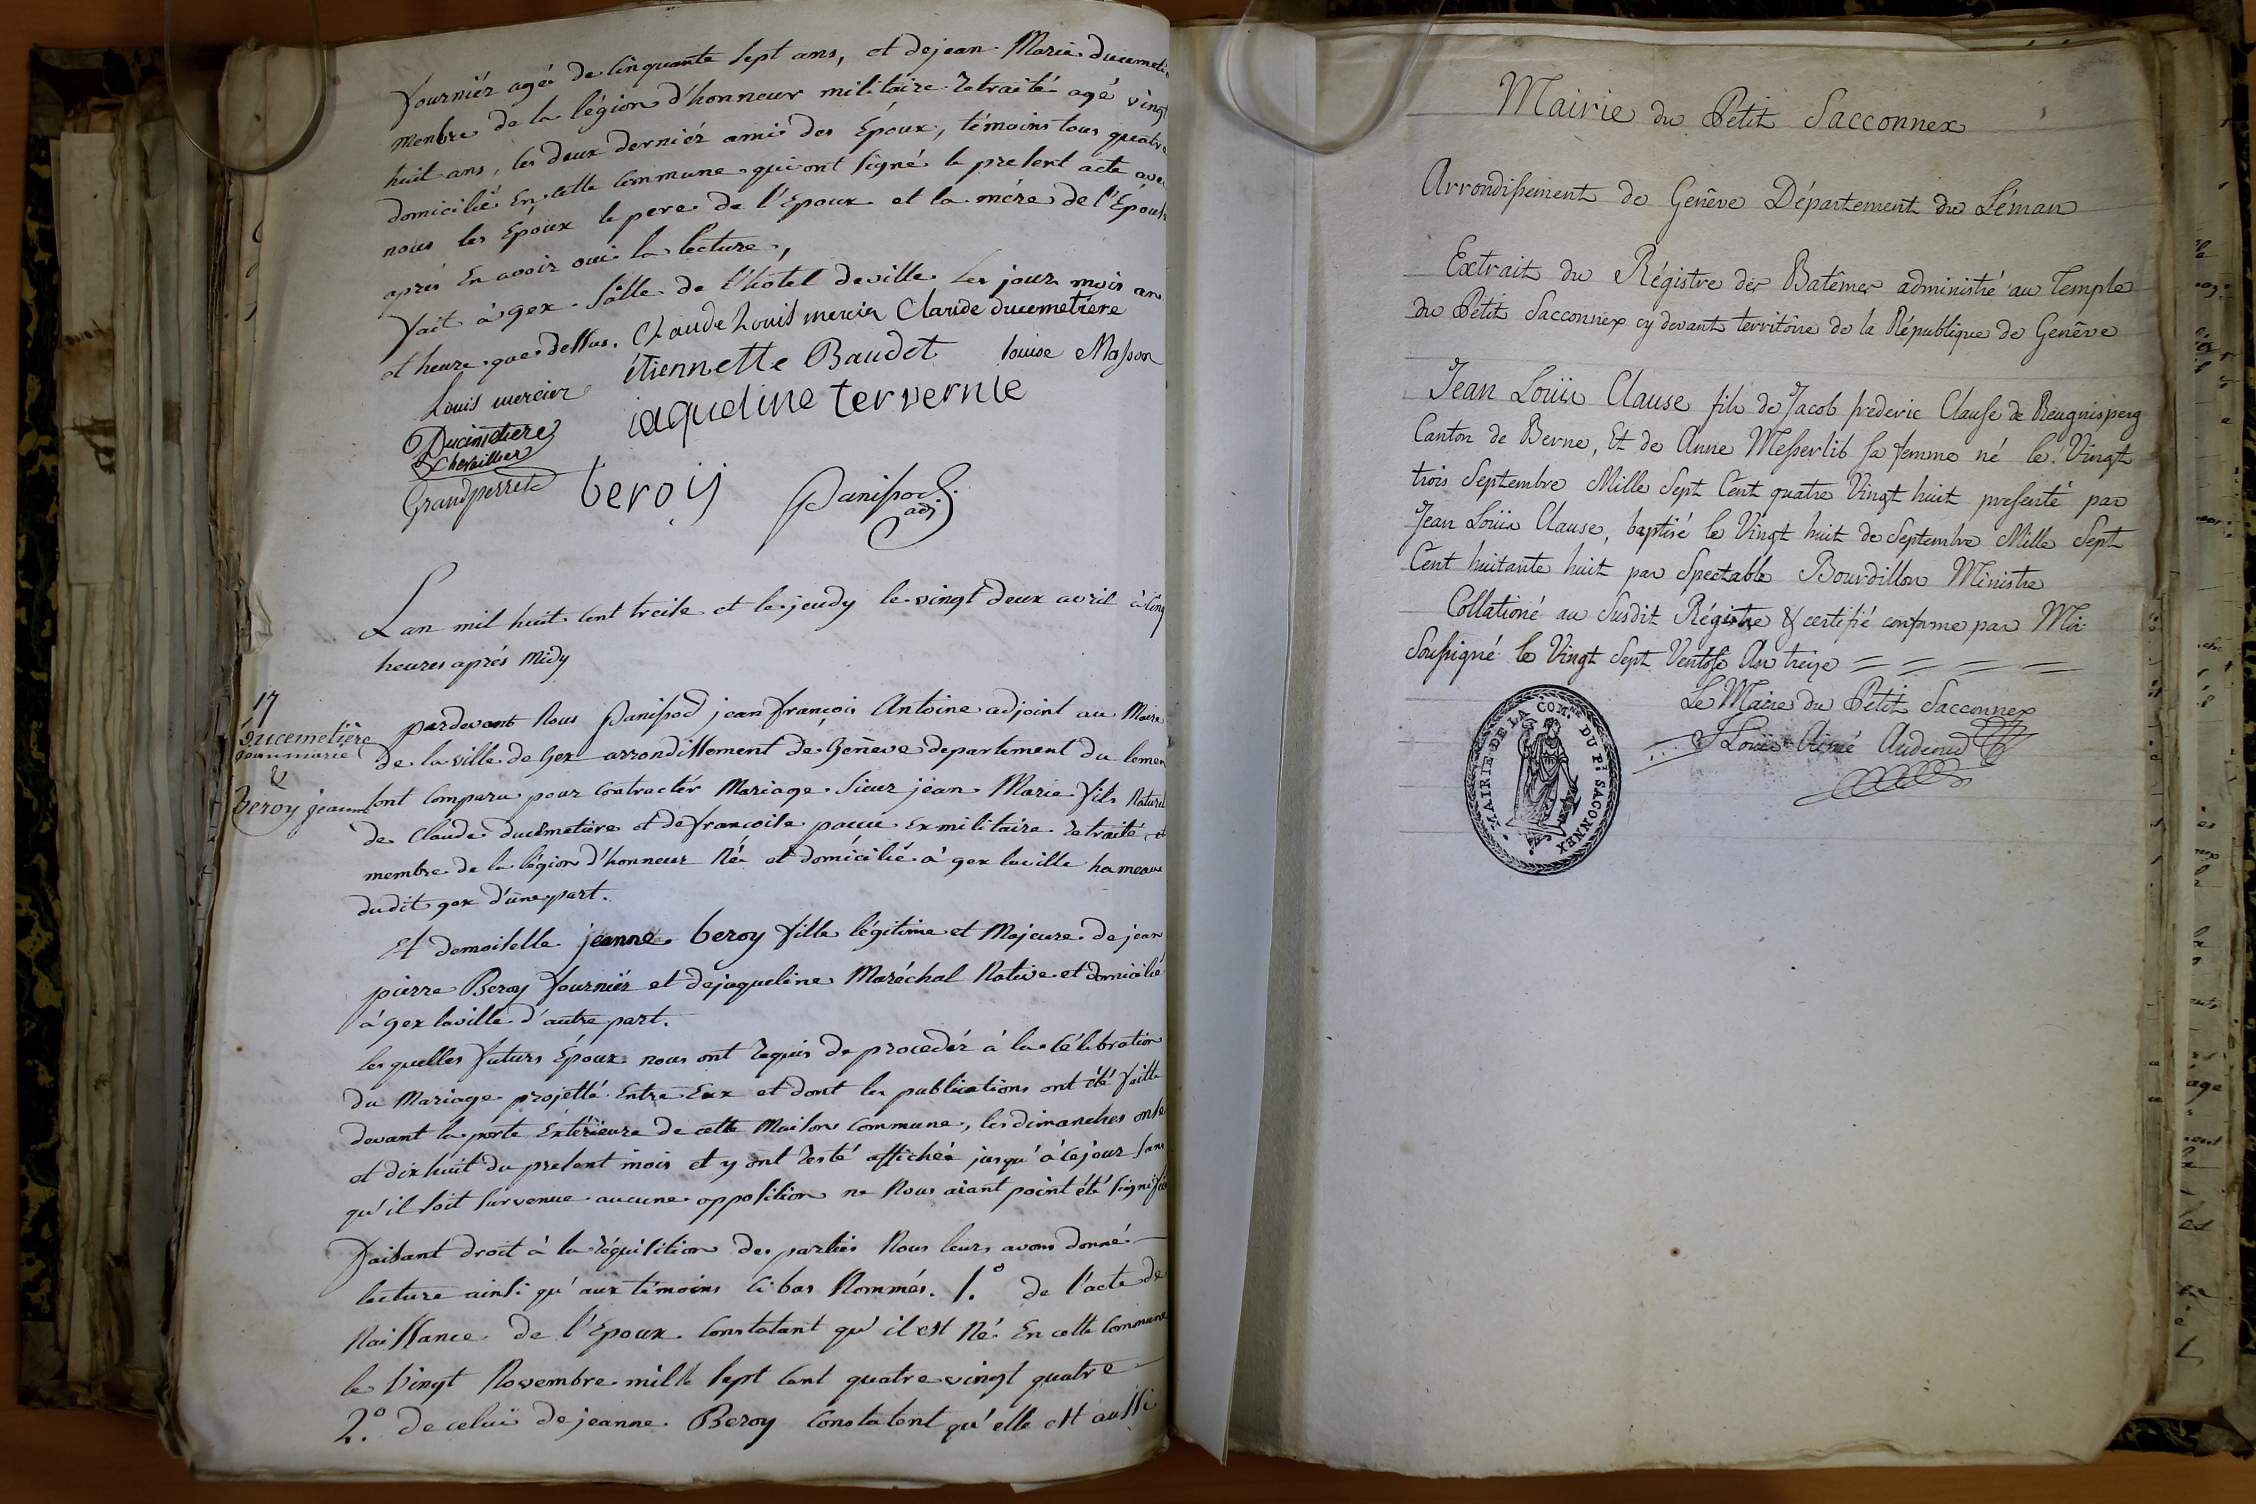 fourniér agée de Cinquante Sept ans, et de jean Marie ducemetie
membre de la légion d'honneur militaire retraité agé vingt
huit ans, les deux derniér ami des Époux, témoins tous quatre
domicilié En cette Commune qui ont signé le présent acte avec
nous les Époux le pere de l'Epoux et la mére de l'Épouse
aprés En avoir oui la lecture,
fait à gex Sâlle de l'hôtel de ville les jour mois an
et heure que dessus. Claude Louis mercier Claude ducemetiere
étiennette Baudet louise Masson
Louis mercier
jaqueline tervernie
Ducimetiere
Chevallier
Grandperret
berois
Panissod
adj
Lan mil huit cent treise et le jeudy le vingt deux avril à Cinq
heures aprés Midy
17
Ducemetière
jean marie
&
beroy jeanne
pardevant Nous Panissod jean françois Antoine adjoint au Maire
de la ville de Gex arrondissement de Genêve departement du lemen
sont Comparu pour Contractér Mariage Sieur jean Marie fils Naturel
de Claude ducemetiere et de francoise pacui Exmilitaire retraité et
membre de la légion d'honneur Né et domicilié à gex laville hameau
dudit gex d'une part.
Et demoiselle jeanne beroy fille légitime et Majeure de jean
pierre Beroy fourniér et de jaqueline Maréchal Native et domicilié
à gex laville d'autre part.
lesquelles futurs Époux nous ont requis de procedér à la Célébration
du Mariage projetté Entre Eux et dont les publications ont été faitte
devant la porte Extérieure de cette Maison Commune, les dimanches onse
et dixhuit du present mois et y ont resté affichée jusqu'à ce jour sans
qu'il soit survenue aucune opposition ne Nous aiant point été signifié
faisant droit à la réquisition des parties Nous leurs avons donné
lecture ainsi qu'aux témoins Ci bas Nommés. 1.º de l'acte de
Naissance de l'Epoux Constatant qu'il est Né En cette Commune
le Vingt Novembre mille Sept Cent quatre vingt quatre
2.º de celui de jeanne Beroy Constatent qu'elle est aussi
Mairie du Petit Sacconnex
Arrondissement de Genêve Département du Léman
Extrait du Régistre des Batêmes administré au Temple
du Petit Sacconnex cy devant territoire de la République de Genêve
Jean Louïs Clause fils de Jacob frederic Clause de Reugnisperg
Canton de Berne, Et de Anne Messerlib sa femme né le Vingt
trois Septembre Mille Sept Cent quatre Vingt huit presenté par
Jean Louïs Clause, baptisé le Vingt huit de Septembre Mille Sept
Cent huitante huit par Spectable Bourdillon Ministre
Collationé au Susdit Régistre & certifié conforme par Moi
Soussigné le Vingt Sept Ventose An treize
Le Maire du Petit Sacconnex
J Louis Aimé Audeoud
MAIRIE DE LA COM.NE DU P.T SACONNEX